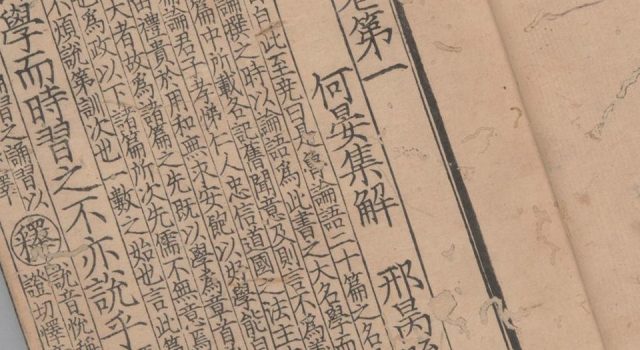 第一
何晏集解 邢昺
此至尭曰是魯論語二十篇之名
論撰之時以論語為此書之大名學而
篇中所載各記舊聞意及則言不為
論君子孝悌仁人忠信道國之法主
禮貴於用和無求安飽以好學能自
大者故為諸篇之先既以學為章首
也為政以下諸篇所次先儒不無意焉
不煩說第訓次也一數之始也言此篇
學而時習之不亦說乎
誦習以 釋 說音悅稱
習之 證切懌